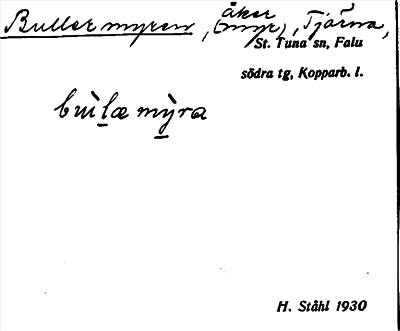 Bullermyren, åker (myr), Tjärna,
St. Tuna sn, Falu
södra tg, Kopparb. l.
bùl̲æ mỳ̲ra
H. Ståhl 1930